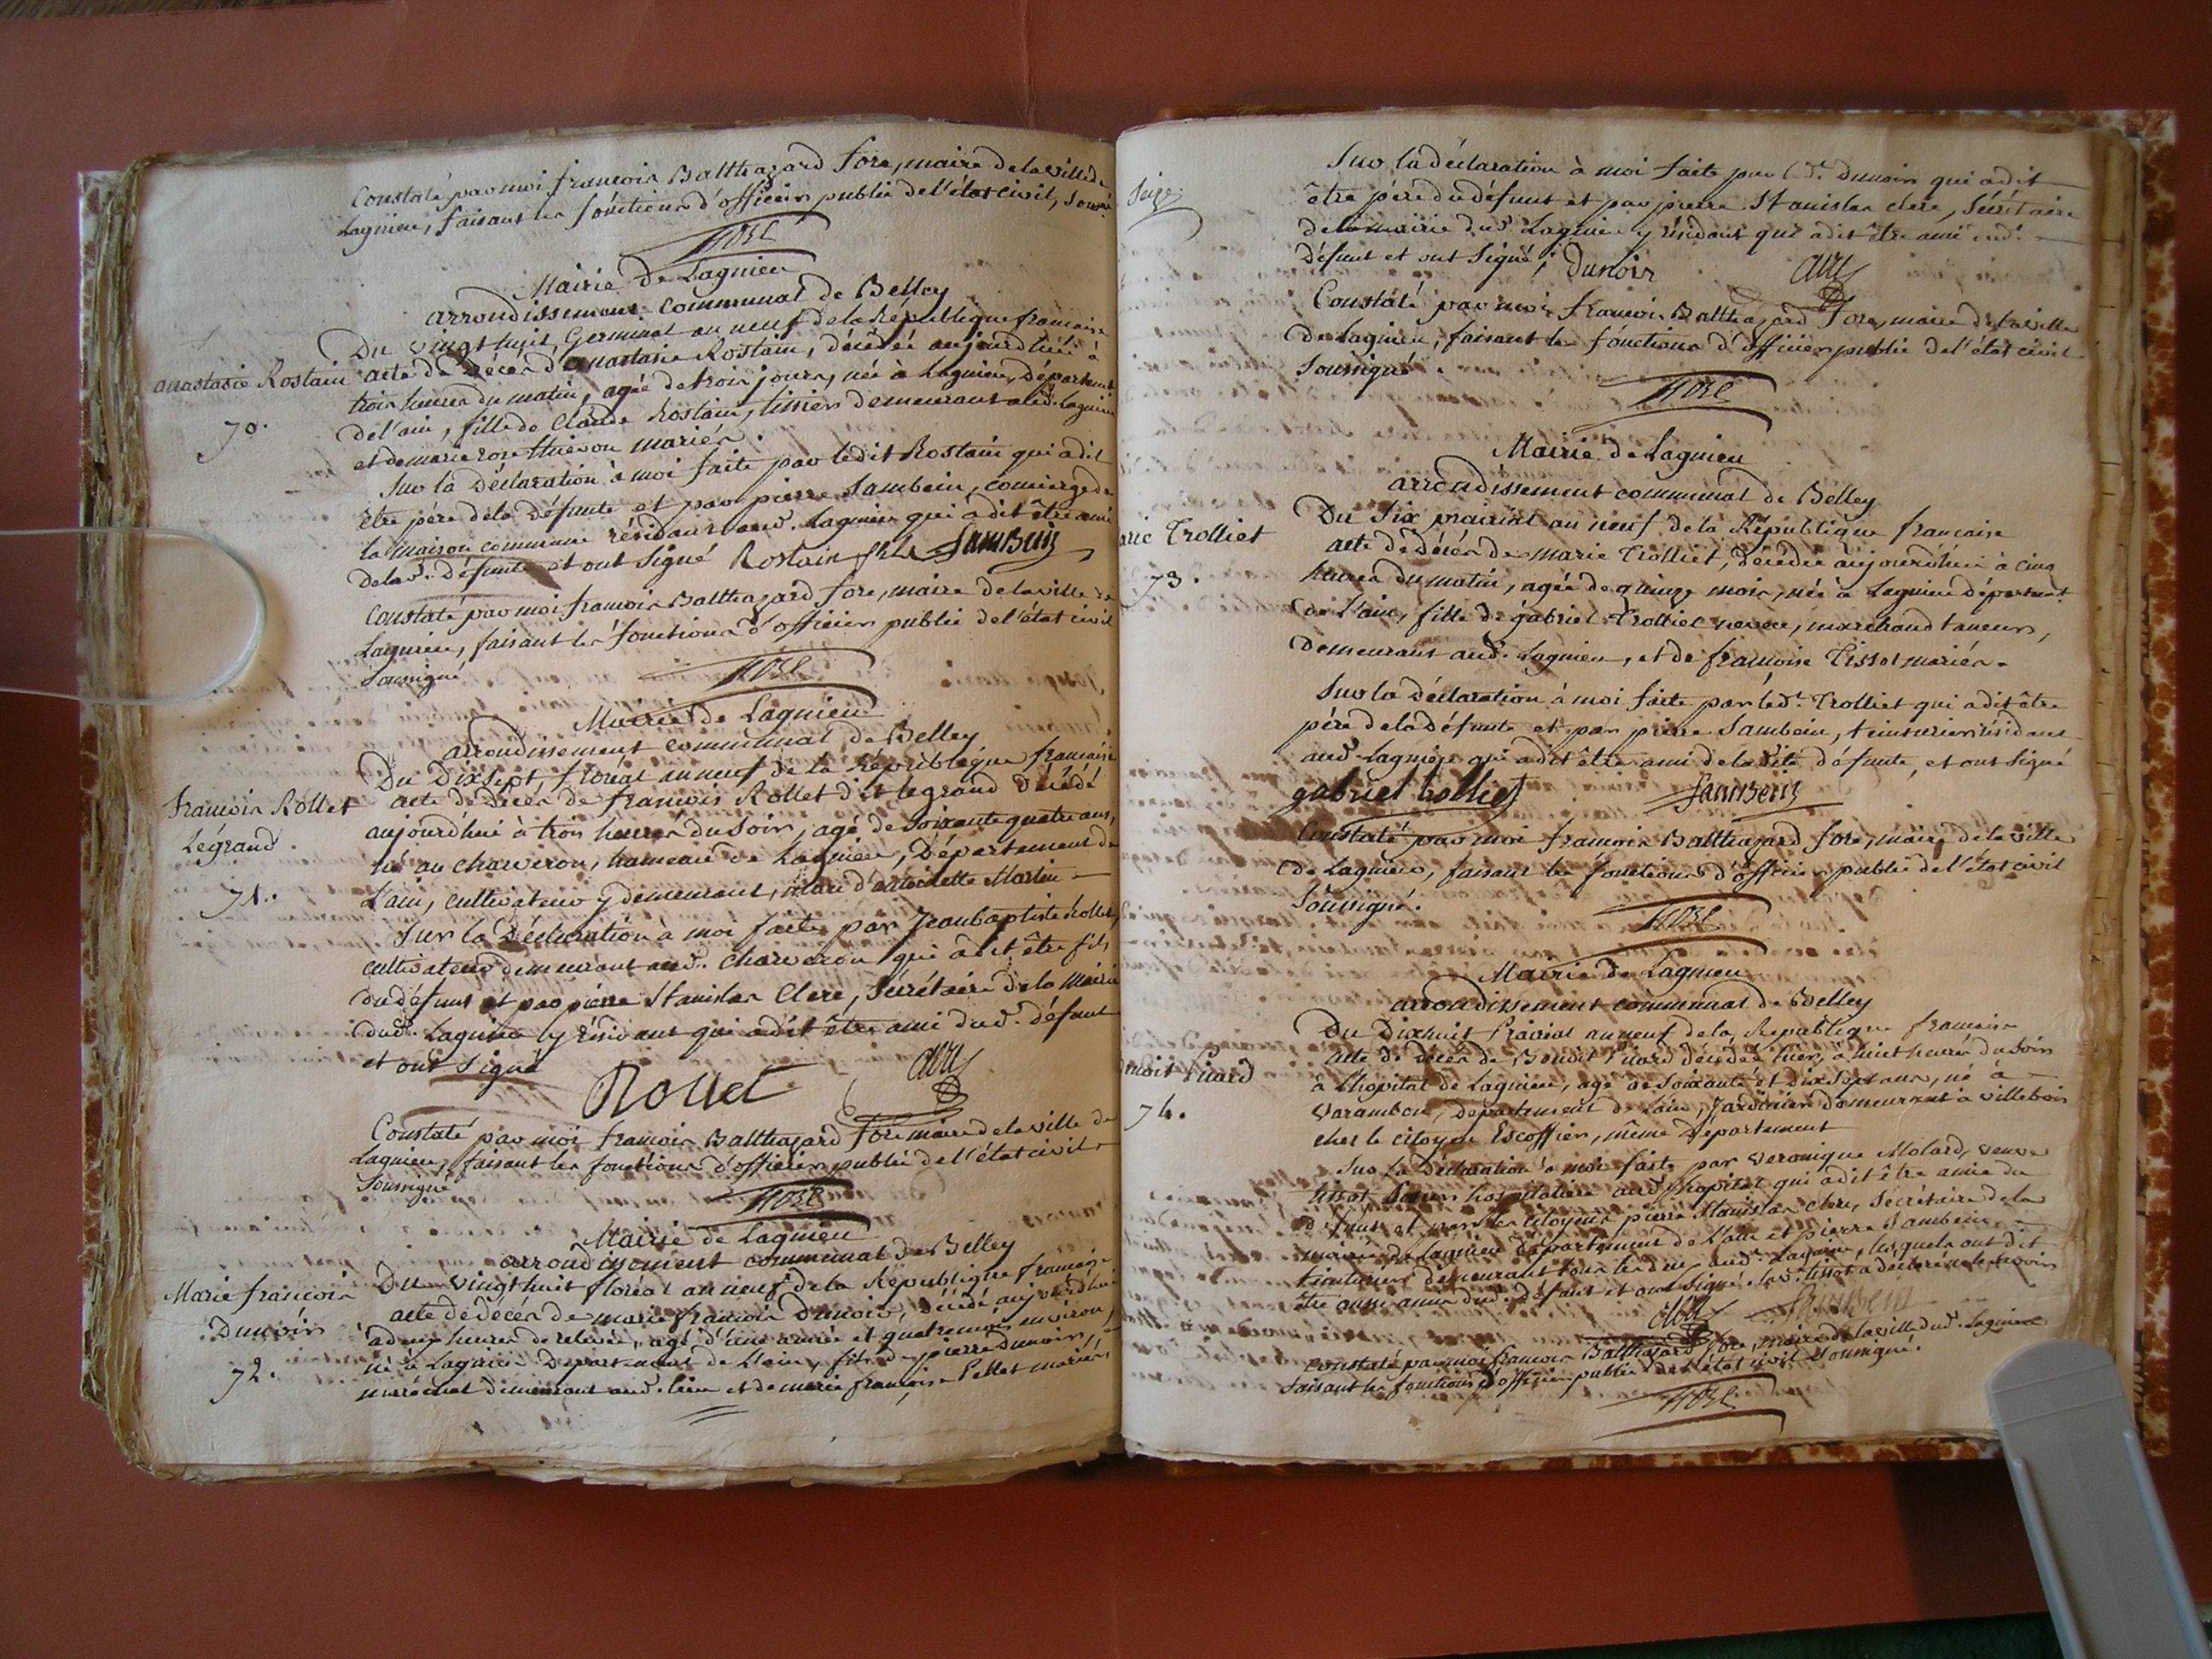 Constaté par moi françois Balthazard fore, maire de la ville de
Lagnieu, faisant les fonctions d'officier public de l'état civil, soussigné
fore
Mairie de Lagnieu
arrondissement communal de Belley
Du vingt huit Germinal an neuf de la République francaise
anastasie Rostain
acte de décés d'anastasie Rostain, décédée aujourd'hui à
trois heures du matin, agée de trois jours, née à Lagnieu, département
70.
de l'ain, fille de Claude Rostain, tissier demeurant aud. Lagnieu
et de marie rose mariés.
Sur la déclaration à moi faite par ledit Rostain qui a dit
être pére de la défunte et par pierre Sambein, concierge de
la maison commune résidant aud. Lagnieu qui a dit être ami
de lad. défunte et ont signé Rostain Sambein
Constaté par moi francois Balthazard fore, maire de la ville de
Lagnieu, faisant les fonctions d'officier public de l'état civil
soussigné
fore
Mairie de Lagnieu
arrondissement communal de Belley
Du dix sept floréal an neuf de la République francaise
francois Rollet
acte de décés de francois Rollet dit legrand décédé
Légrand.
aujourd'hui à trois heures du soir, agé de soixante quatre ans,
né au charveron, hameau de Lagnieu, Département de
71.
L'ain, cultivateur y demeurant, mari d'antoinette Martin
Sur la Déclaration à moi faite par Jean baptiste Rollet,
cultivateur demeurant aud. charveron qui a dit être fils
du défunt et par pierre Stanislas Clerc, Sécrétaire de la Mairie
dud. Lagnieu y résidant qui a dit être ami dud. défunt
et ont signé
Rollet Clerc
Constaté par moi francois Balthazard fore maire de la ville de
Lagnieu, faisant les fonctions d'officier public de l'état civil
soussigné
fore
Mairie de Lagnieu
arrondissement communal de Belley
Marie francois
Du vingt huit floréal an neuf de la République francaise
Dunoir
acte de décés de marie francois Dunoir, décédé aujourd'hui
à deux heures de relevée, agé d'une année et quatre mois environ,
72.
né à Lagnieu Département de L'ain, fils de pierre Dunoir,
maréchal demeurant aud. lieu et de marie francoise Pellet mariés
Seize
Sur la déclaration à moi faite par led. Dunoir qui a dit
être pére du défunt et par pierre Stanislas clerc, sécrétaire
de la mairie dud. Lagnieu y résidant qui a dit être ami dud.
défunt et ont signé ; Dunoir Clerc
Constaté par moi francois Balthazard fore, maire de la ville
de Lagnieu, faisant les fonctions d'officier public de l'état civil
soussigné.
fore
Mairie de Lagnieu
arrondissement communal de Belley
Du six prairial an neuf de la République francaise
arie Trolliet
acte de décés de marie Trolliet, décédée aujourd'hui à cinq
73.
heures du matin, agée de quinze mois, née à Lagnieu département
de L'ain, fille de gabriel Trolliet neveu, marchand taneur,
demeurant aud. Lagnieu, et de francoise Tissot mariés.
Sur la déclaration à moi faite par led. Trolliet qui a dit être
pére de la défunte et par pierre Sambein, teinturier résidant
aud. Lagnieu qui a dit être ami de la dite défunte, et ont signé
gabriel trolliet Sambein
Constaté par moi francois Balthazard fore, maire de la ville
de Lagnieu, faisant les fonctions d'officier public de l'état civil
soussigné.
fore
Mairie de Lagnieu
arrondissement communal de Belley
Du dix huit Prairial an neuf de la République francaise
acte de décés de Benoit décédé hier, à huit heures du soir
noit
à L'hopital de Lagnieu, agé de soixante et dix sept ans, né à
74.
Varambon, département de L'ain, Jardinier demeurant à villebois
chez le citoyen Escoffier, même Département
Sur la Déclaration à moi faite par veronique Molard, veuve
tissot soeur hospitalière aud. hopital qui a dit être amie du
défunt et par les citoyens pierre Stanislas Clerc, Secrétaire de la
mairie de Lagnieu département de L'ain et pierre Sambein
teinturier demeurant tous les deux aud. Lagnieu, lesquels ont dit
être aussi amis dud. défunt et ont signé, lad. tissot a déclaré ne le savoir
Clerc Sambein
Constaté par moi francois Balthazard fore, maire de la ville dud. Lagnieu
faisant les fonctions d'officier public de l'état civil soussigné.
fore